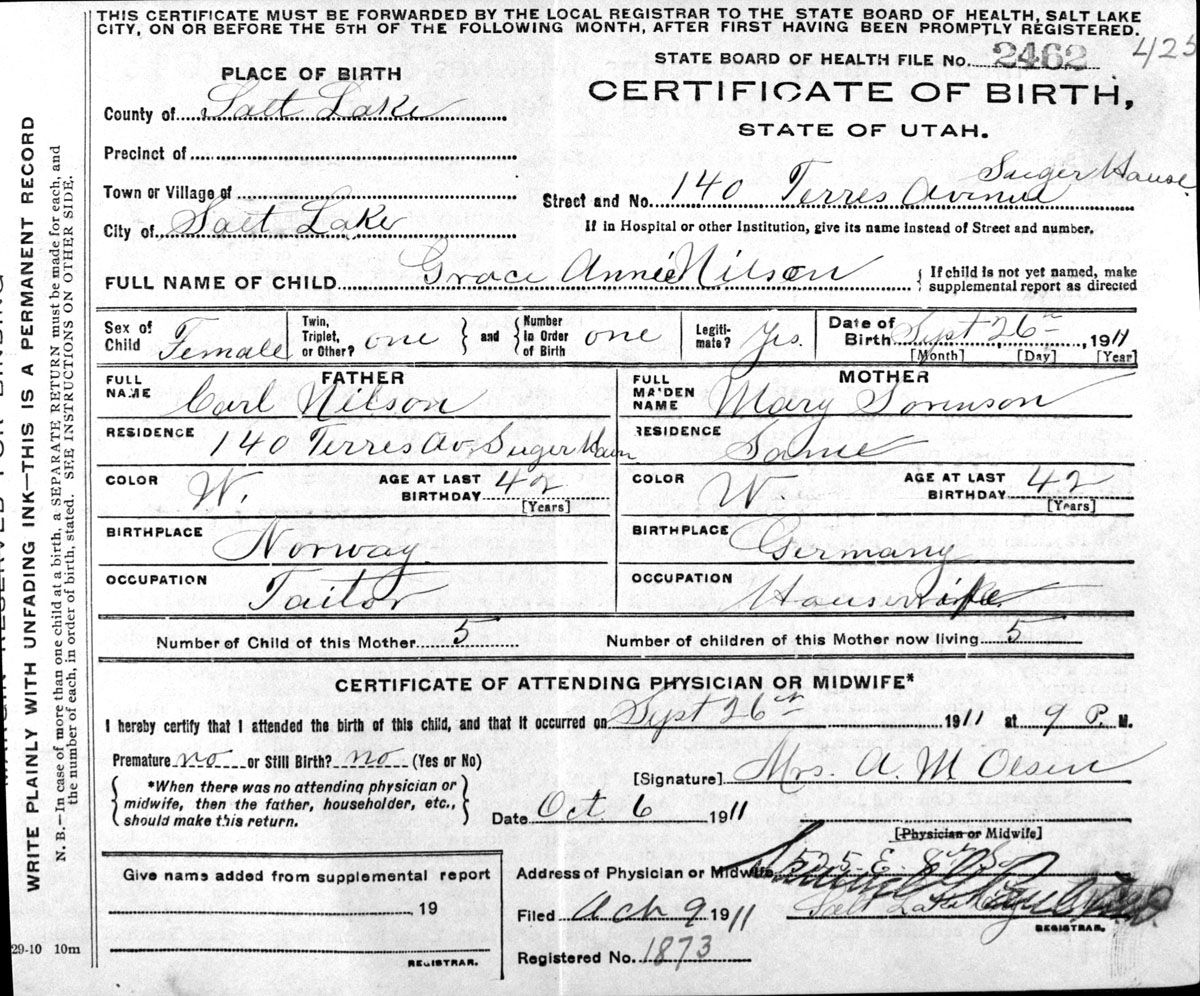 THIS CERTIFICATE MUST BE FORWARDED BY THE LOCAL REGISTRAR TO THE STATE BOARD OF HEALTH, SALT LAKE
CITY, ON OR BEFORE THE 5TH OF THE FOLLOWING MONTH, AFTER FIRST HAVING BEEN PROMPTLY REGISTERED.
STATE BOARD OF HEALTH FILE No. 2462 425
CERTIFICATE OF BIRTH,
STATE OF UTAH.
PLACE OF BIRTH
County of Salt Lake
Precinct of
Town or Village of
City of Salt Lake
Suger Hause
Street and No. 140 Terres Avinue
If in Hospital or other Institution, give its name instead of Street and number.
FULL NAME OF CHILD Grace Annie Nilson { If child is not yet named, make
supplemental report as directed
Sex of Child Female
Twin, Triplet, or Other? one } and { Number in Order of Birth one
Legiti-mate? Yes.
Date of Birth Sept 26th, 1911
[Month] [Day] [Year]
FATHER
FULL NAME Carl Nilson
RESIDENCE 140 Terres Av. Suger
COLOR W. AGE AT LAST BIRTHDAY 42
[Years]
BIRTHPLACE Norway
OCCUPATION Tailor
MOTHER
FULL MAIDEN NAME Mary Sorenson
RESIDENCE Same
COLOR W AGE AT LAST BIRTHDAY 42
[Years]
BIRTHPLACE Germany
OCCUPATION Hausewife
Number of Child of this Mother 5 Number of children of this Mother now living 5
CERTIFICATE OF ATTENDING PHYSICIAN OR MIDWIFE*
I hereby certify that I attended the birth of this child, and that it occurred on Sept 26th 1911 at 9 P. M.
Premature no or Still Birth? no (Yes or No)
*When there was no attending physician or
midwife, then the father, householder, etc.,
should make this return.
[Signature] Mrs. A. M Olsen
Date Oct 6 1911
[Physician or Midwife]
Address of Physician or Midwife 525 E. 8th So
Salt Lake
Filed 9 1911
REGISTRAR.
Registered No. 1873
Give name added from supplemental report
, 19
REGISTRAR.
29-10 10m
WRITE PLAINLY WITH UNFADING INK—THIS IS A PERMANENT RECORD
N. B.—In case of more than one child at a birth, a SEPARATE RETURN must be made for each, and
the number of each, in order of birth, stated. SEE INSTRUCTIONS ON OTHER SIDE.